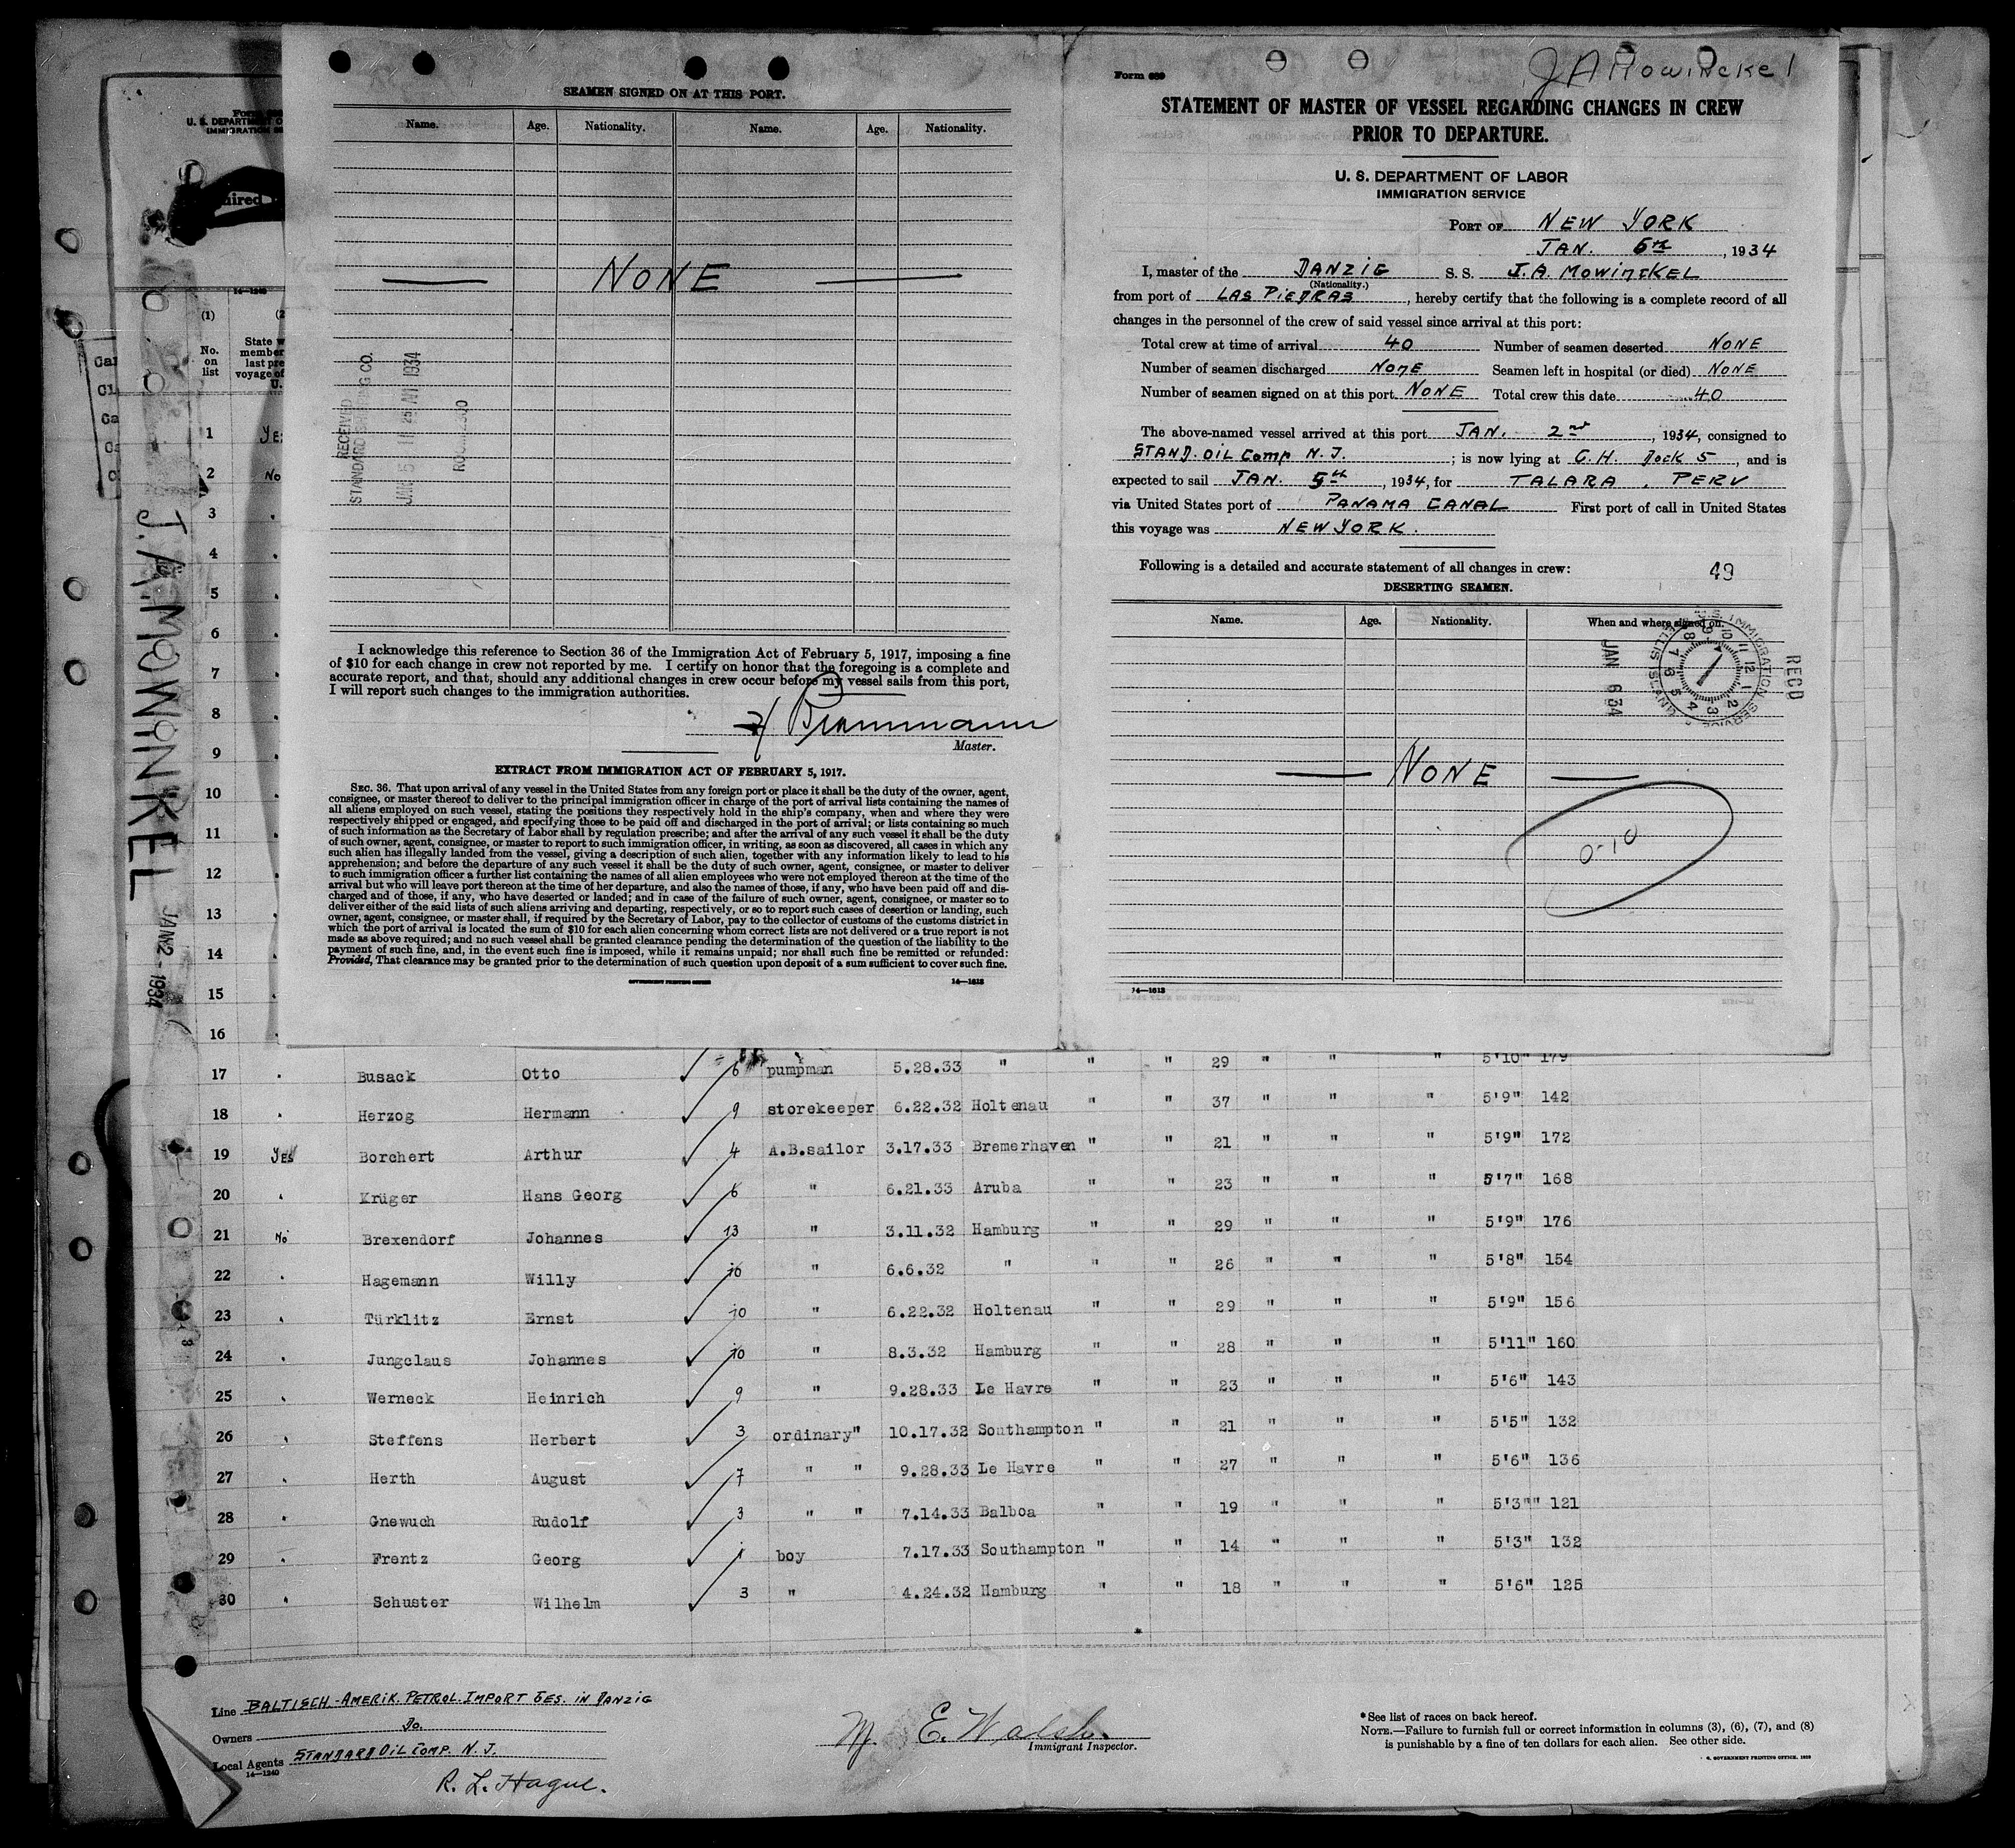 SEAMEN SIGNED ON AT THIS PORT.
Name. Age. Nationality. Name. Age. Nationality.
NONE
RECEIVED
STANDARD CO.
JAN 5 11 25 AM 1934
I acknowledge this reference to Section 36 of the Immigration Act of February 5, 1917, imposing a fine
of $10 for each change in crew not reported by me. I certify on honor that the foregoing is a complete and
accurate report, and that, should any additional changes in crew occur before my vessel sails from this port,
I will report such changes to the immigration authorities.
Master.
EXTRACT FROM IMMIGRATION ACT OF FEBRUARY 5, 1917.
SEC. 36. That upon arrival of any vessel in the United States from any foreign port or place it shall be the duty of the owner, agent,
consignee, or master thereof to deliver to the principal immigration officer in charge of the port of arrival lists containing the names of
all aliens employed on such vessel, stating the positions they respectively hold in the ship's company, when and where they were
respectively shipped or engaged, and specifying those to be paid off and discharged in the port of arrival; or lists containing so much
of such information as the Secretary of Labor shall by regulation prescribe; and after the arrival of any such vessel it shall be the duty
of such owner, agent, consignee, or master to report to such immigration officer, in writing, as soon as discovered, all cases in which any
such alien has illegally landed from the vessel, giving a description of such alien, together with any information likely to lead to his
apprehension; and before the departure of any such vessel it shall be the duty of such owner, agent, consignee, or master to deliver
to such immigration officer a further list containing the names of all alien employees who were not employed thereon at the time of the
arrival but who will leave port thereon at the time of her departure, and also the names of those, if any, who have been paid off and dis-
charged and of those, if any, who have deserted or landed; and in case of the failure of such owner, agent, consignee, or master so to
deliver either of the said lists of such aliens arriving and departing, respectively, or so to report such cases of desertion or landing, such
owner, agent, consignee, or master shall, if required by the Secretary of Labor, pay to the collector of customs of the customs district in
which the port of arrival is located the sum of $10 for each alien concerning whom correct lists are not delivered or a true report is not
made as above required; and no such vessel shall be granted clearance pending the determination of the question of the liability to the
payment of such fine, and, in the event such fine is imposed, while it remains unpaid; nor shall such fine be remitted or refunded:
Provided, That clearance may be granted prior to the determination of such question upon deposit of a sum sufficient to cover such fine.
GOVERNMENT PRINTING OFFICE 14—1613
Form 689
J A Mowinckel
STATEMENT OF MASTER OF VESSEL REGARDING CHANGES IN CREW
PRIOR TO DEPARTURE.
U. S. DEPARTMENT OF LABOR
IMMIGRATION SERVICE
PORT OF NEW YORK
JAN. 6th, 1934
I, master of the DANZIG S. S. J.A. MOWINCKEL
(Nationality.)
from port of LAS PIEDRAS, hereby certify that the following is a complete record of all
changes in the personnel of the crew of said vessel since arrival at this port:
Total crew at time of arrival 40 Number of seamen deserted NONE
Number of seamen discharged NONE Seamen left in hospital (or died) NONE
Number of seamen signed on at this port NONE Total crew this date 40
The above-named vessel arrived at this port JAN. 2nd, 1934, consigned to
STAND. OIL Comp N.J.; is now lying at C.H. Dock 5, and is
expected to sail JAN. 5th, 1934, for TALARA, PERU
via United States port of PANAMA CANAL First port of call in United States
this voyage was NEW YORK.
Following is a detailed and accurate statement of all changes in crew: 49
DESERTING SEAMEN.
Name. Age. Nationality. When and where signed on.
IMMIGRATION SERVICE
ELLIS ISLAND
JAN 6 34
REC'D
NONE
0-10
14—1613
J. A. MOWINKEL
JAN 2 - 1934
U. S. DEPARTMENT O
14—1240
(1)
No.
on
list
State w
member
last pre
voyage of
U.
1 YES
2 No
3
4
5
6
7
8
9
10
11
12
13
14
15
16
17 Busack Otto 6 pumpman 5.28.33 " " " 29 " " " 5'10" 179
18 Herzog Hermann 9 storekeeper 6.22.32 Holtenau " " 37 " " " 5'9" 142
19 YES Borchert Arthur 4 A.B.sailor 3.17.33 Bremerhaven " " 21 " " " 5'9" 172
20 Krüger Hans Georg 6 " 6.21.33 Aruba " " 23 " " " 5'7" 168
21 No Brexendorf Johannes 13 " 3.11.32 Hamburg " " 29 " " " 5'9" 176
22 Hagemann Willy 10 " 6.6.32 " " " 26 " " " 5'8" 154
23 Türklitz Ernst 10 " 6.22.32 Holtenau " " 29 " " " 5'9" 156
24 Jungclaus Johannes 10 " 8.3.32 Hamburg " " 28 " " " 5'11" 160
25 Werneck Heinrich 9 " 9.28.33 Le Havre " " 23 " " " 5'6" 143
26 Steffens Herbert 3 ordinary" 10.17.32 Southampton " " 21 " " " 5'5" 132
27 Herth August 7 " " 9.28.33 Le Havre " " 27 " " " 5'6" 136
28 Gnewuch Rudolf 3 " " 7.14.33 Balboa " " 19 " " " 5'3"" 121
29 Frentz Georg 1 boy 7.17.33 Southampton " " 14 " " " 5'3" 132
30 Schuster Wilhelm 3 " 4.24.32 Hamburg " " 18 " " " 5'6" 125
Line BALTISCH.-AMERIK. PETROL. IMPORT GES. IN DANZIG
Owners Do.
Local Agents STANDARD OIL COMP. N. J.
14—1240
R. L. Hague.
E. Walsh
Immigrant Inspector.
*See list of races on back hereof.
NOTE.—Failure to furnish full or correct information in columns (3), (6), (7), and (8)
is punishable by a fine of ten dollars for each alien. See other side.